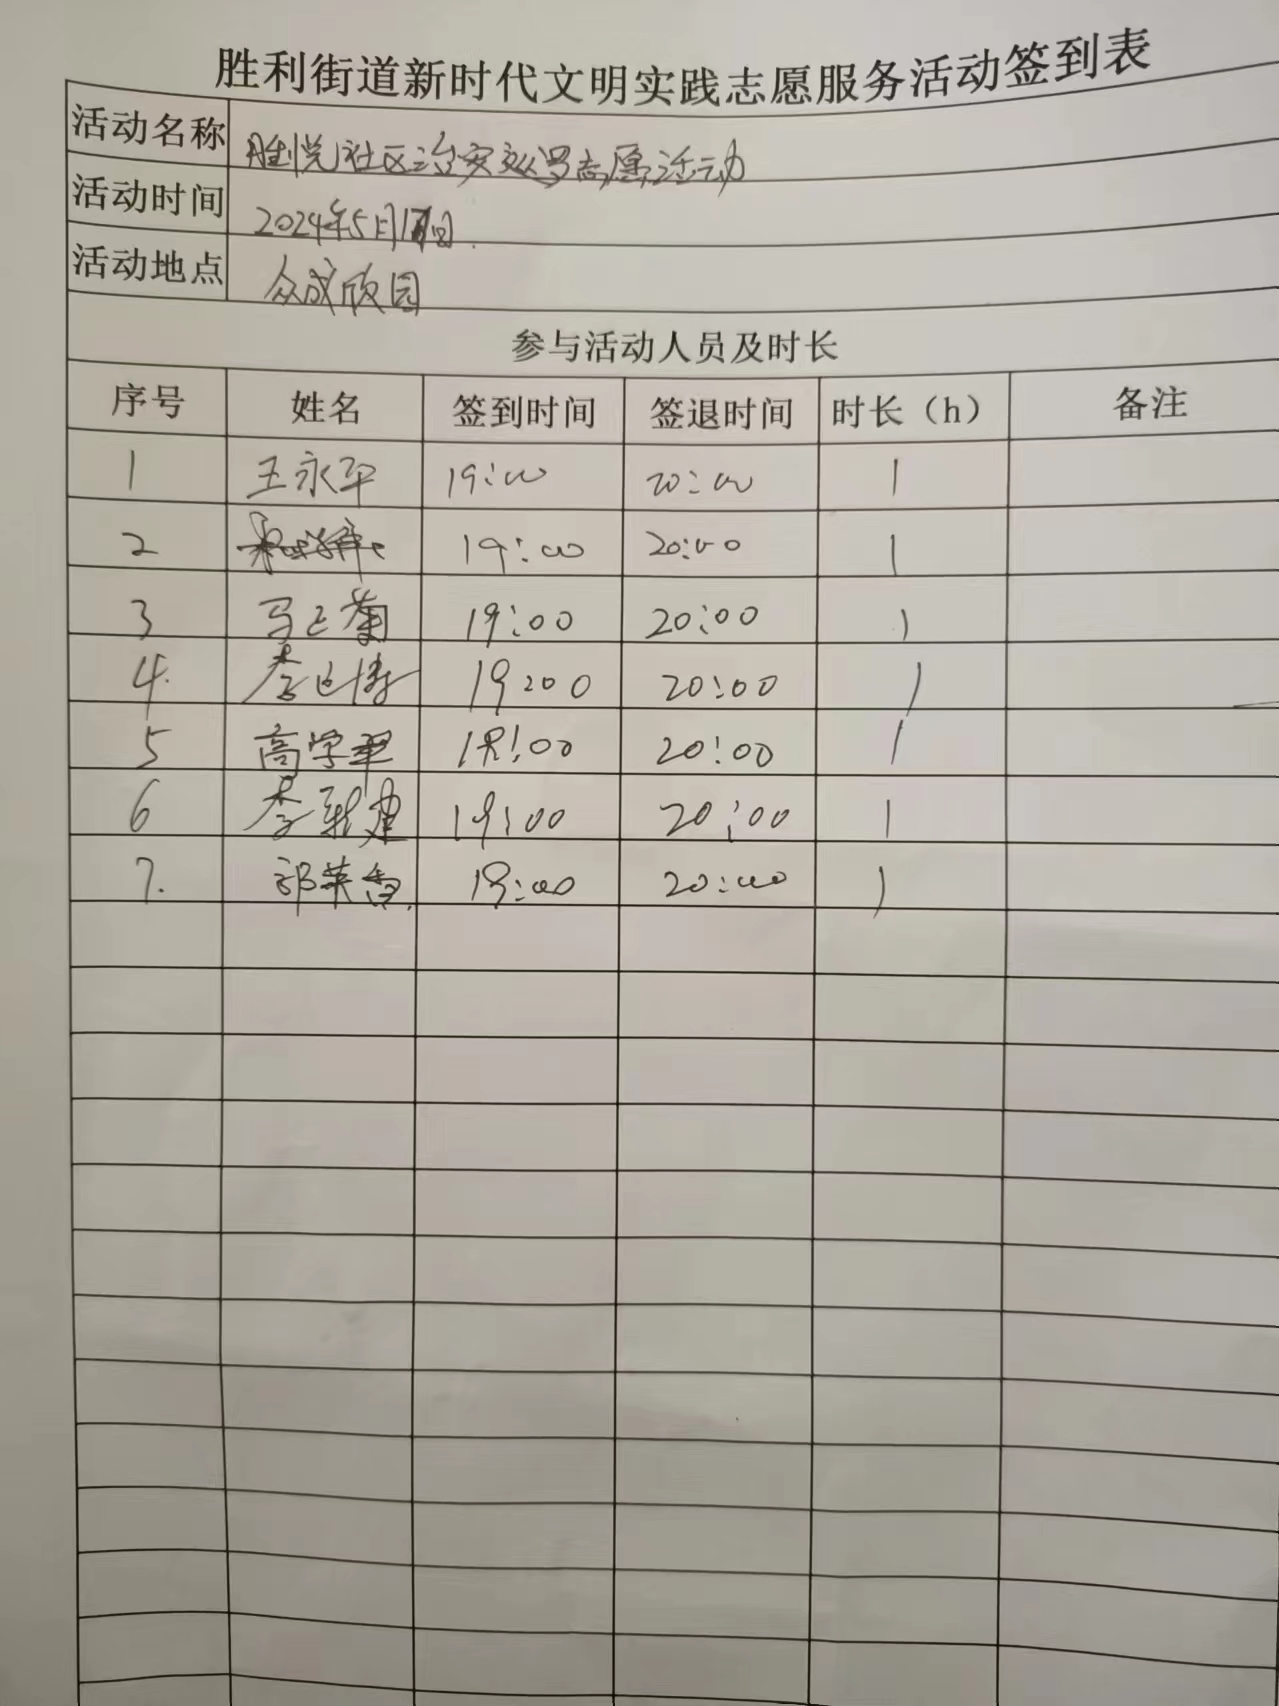 胜利街道新时代文明实践志愿服务活动签到表
活动名称 胜悦社区治安巡逻志愿活动
活动时间 2024年5月17日
活动地点 众成欣园
参与活动人员及时长
序号 姓名 签到时间 签退时间 时长（h） 备注
1 王永平 19:00 20:00 1
2 19:00 20:00 1
3 马菊 19:00 20:00 1
4. 李 19:00 20:00 1
5 高学 19:00 20:00 1
6 李建 19:00 20:00 1
7. 祁英香 19:00 20:00 1